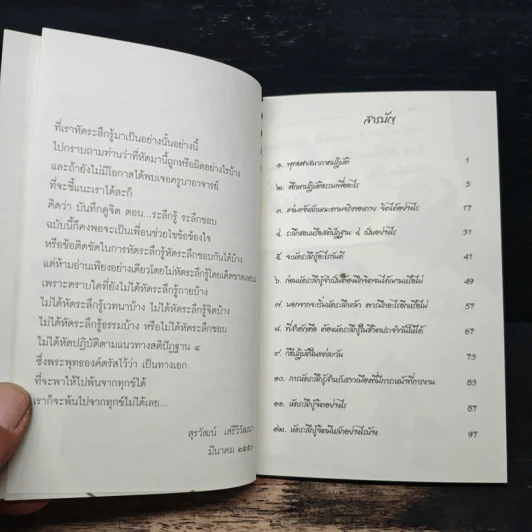 ที่เราหัดระลึกรู้มาเป็นอย่างนั้นอย่างนี้
ไปกราบถามท่านว่าที่หัดมานี้ถูกหรือผิดอย่างไรบ้าง
และถ้ายังไม่มีโอกาสได้พบเจอครูบาอาจารย์
ที่จะชี้แนะเราได้ละก็
คิดว่า บันทึกดูจิต ตอน...ระลึกรู้ ระลึกชอบ
ฉบับนี้ก็คงพอจะเป็นเพื่อนช่วยไขข้อข้องใจ
หรือข้อติดขัดในการหัดระลึกรู้หัดระลึกชอบกันได้บ้าง
แต่ห้ามอ่านเพียงอย่างเดียวโดยไม่หัดระลึกรู้โดยเด็ดขาดเลยนะ
เพราะตราบใดที่ยังไม่ได้หัดระลึกรู้กายบ้าง
ไม่ได้หัดระลึกรู้เวทนาบ้าง ไม่ได้หัดระลึกรู้จิตบ้าง
ไม่ได้หัดระลึกรู้ธรรมบ้าง หรือไม่ได้หัดระลึกชอบ
ไม่ได้หัดปฏิบัติตามแนวทางสติปัฏฐาน ๔
ซึ่งพระพุทธองค์ตรัสไว้ว่า เป็นทางเอก
ที่จะพาให้ไปพ้นจากทุกข์ได้
เราก็จะพ้นไปจากทุกข์ไม่ได้เลย...
สุรวัฒน์ เสรีวิวัฒนา
มีนาคม ๒๕๕๐
สารบัญ
๑. พุทธศาสนาภาคปฏิบัติ 1
๒. ศึกษาปฏิบัติธรรมเพื่ออะไร 5
๓. 17
๔. ระลึกชอบคือสติปัฏฐาน ๔ เป็นอย่างไร 31
๕. จะหัดระลึกรู้อะไรกันดี 41
๖. ก่อนหัดระลึกรู้จำเป็นต้องฝึกจิตจนได้ฌานหรือไม่ 49
๗. 57
๘. ที่สำคัญคือ ต้องหัดระลึกรู้ในชีวิตประจำวันให้ได้ 67
๙. วิธีปฏิบัติในแต่ละวัน 73
๑๐. การหัดระลึกรู้สำหรับชาวเมืองที่มีภาระหน้าที่การงาน 83
๑๑. หัดระลึกรู้จิตอย่างไร 87
๑๒. หัดระลึกรู้จิตมีหลักอย่างไรบ้าง 97